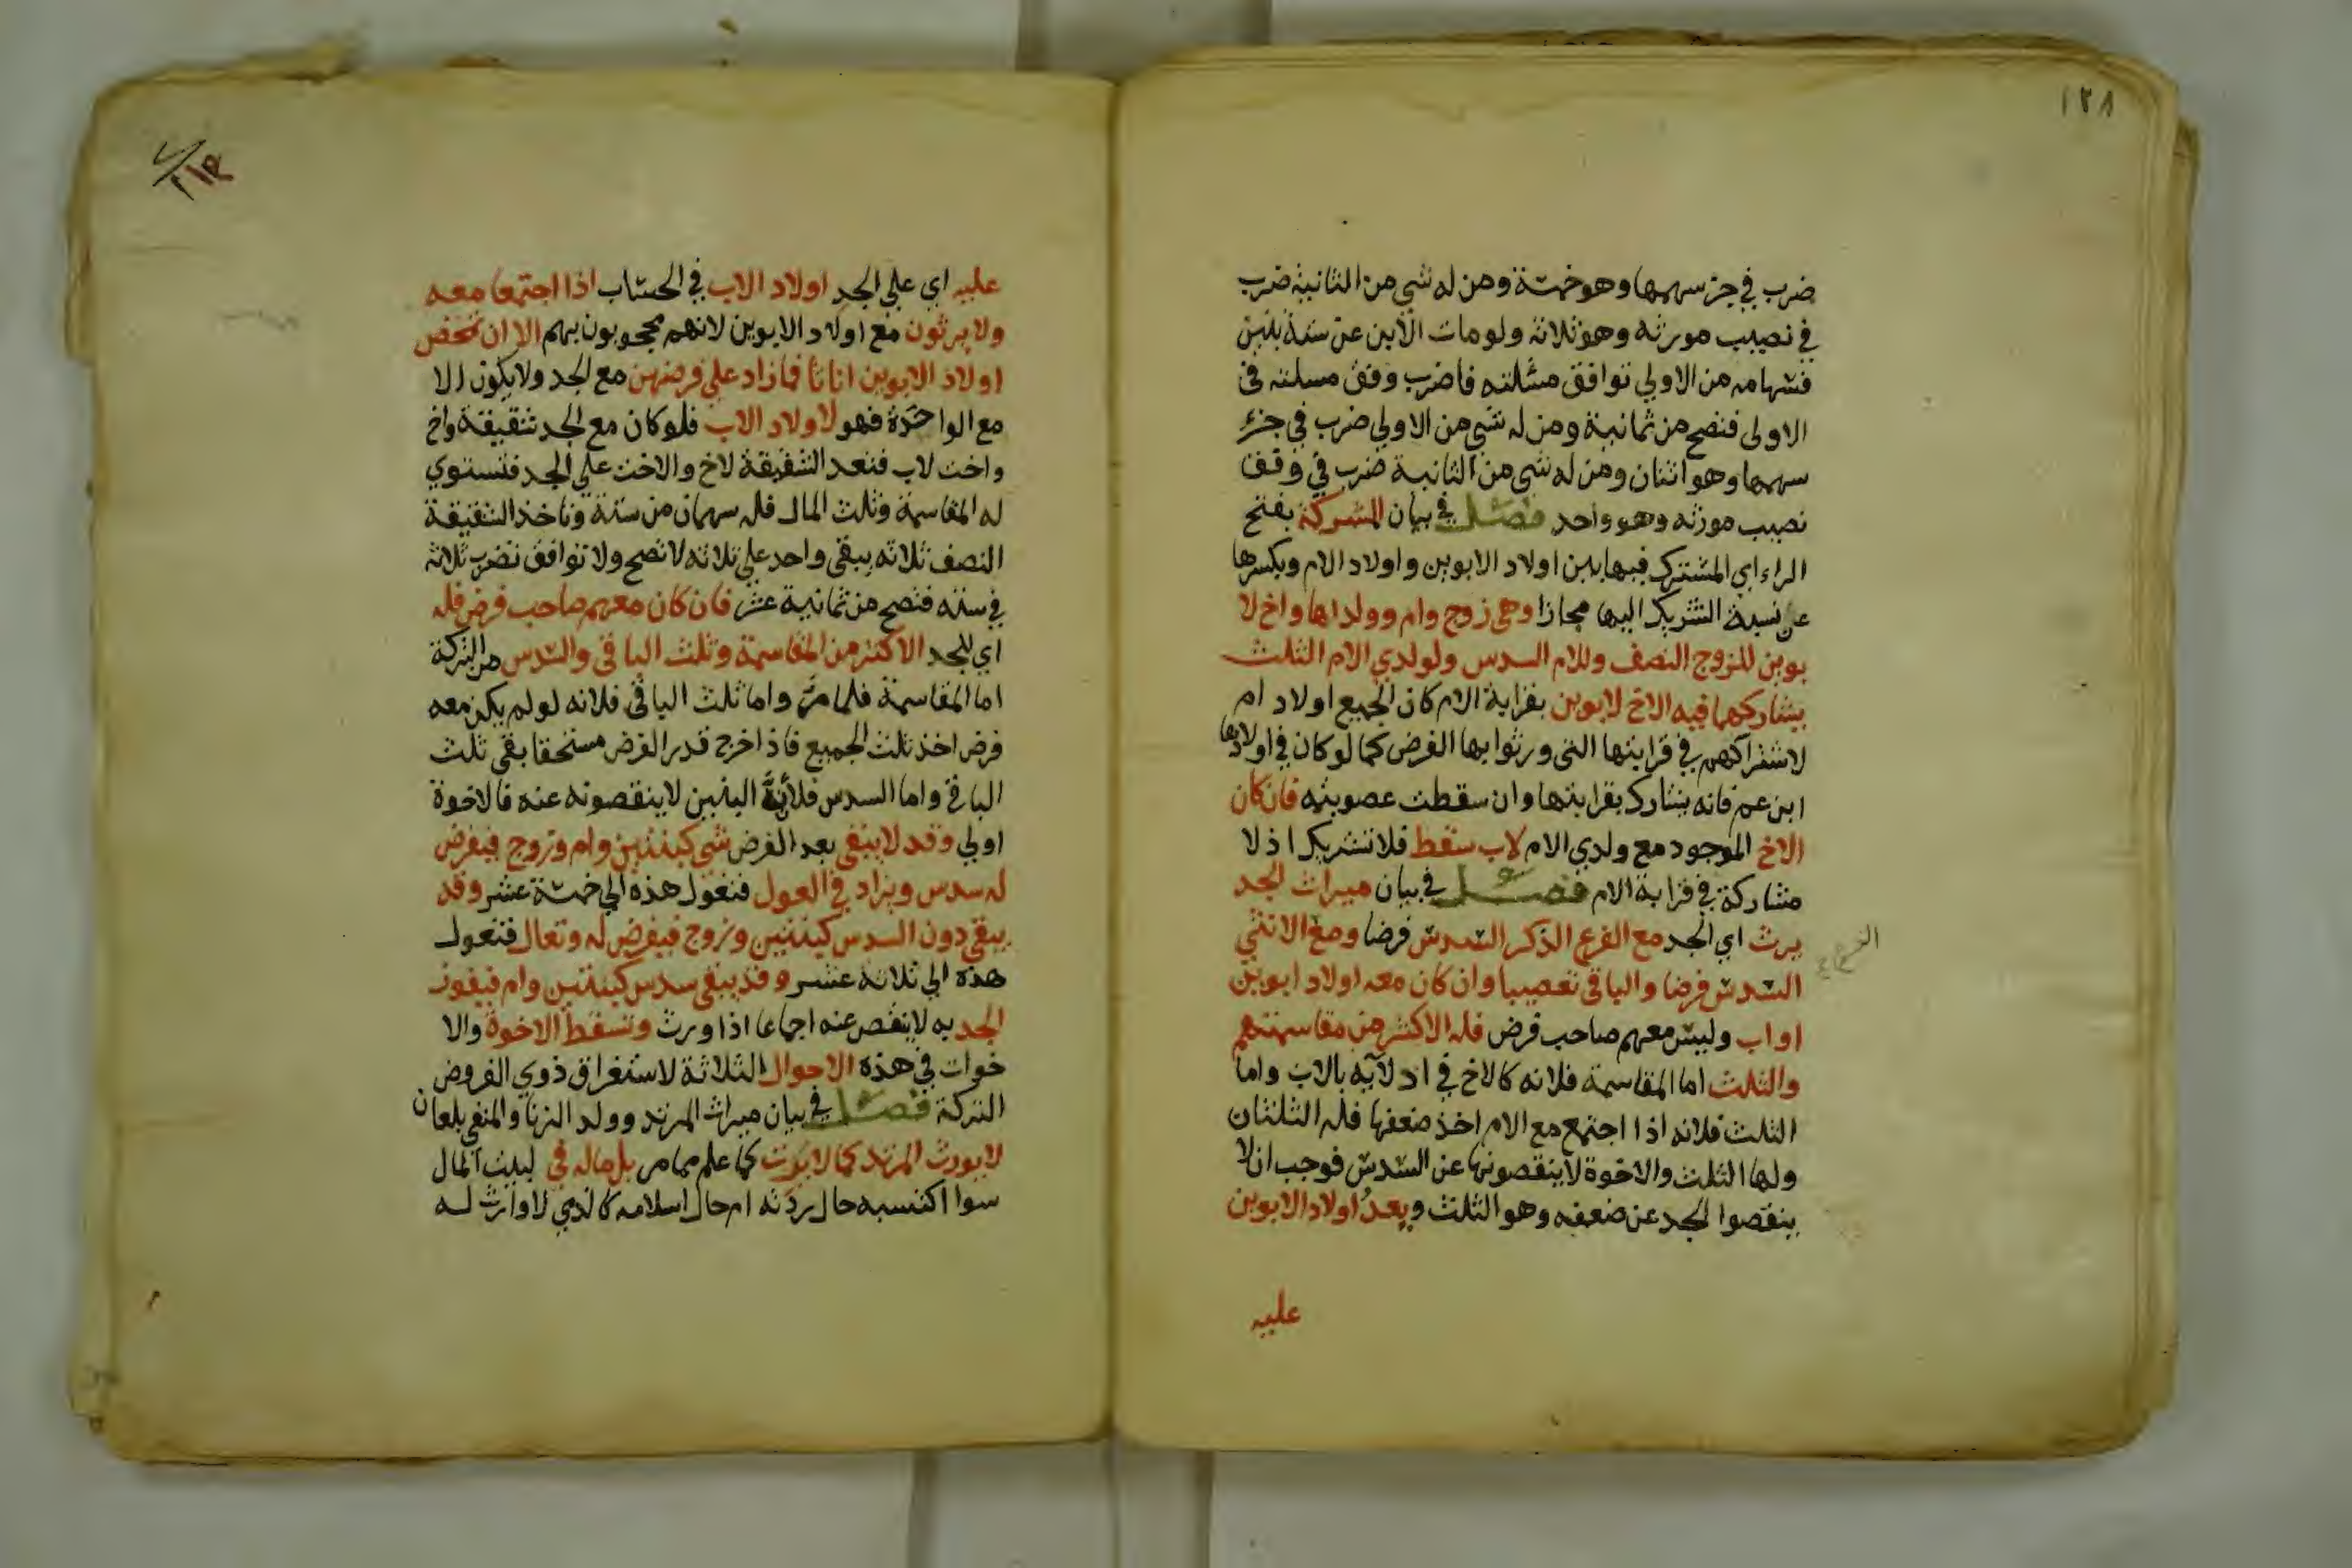 ١٢٨
ضرب في جزء سهمها وهو خمسة ومن له شي من الثانية ضرب
في نصيب مورثه وهو ثلاثة ولو مات الابن عن ستة بنين
فسهامه من الاولي توافق مسئلته فاضرب وفق مسلته في
الاولى فتصح من ثمانية ومن له شي من الاولي ضرب في جزء
سهمها وهو اثنان ومن له شي من الثانية ضرب في وفق
نصيب مورثه وهو واحد فصل في بيان المشركة بفتح
الراء اي المشترك فيها بين اولاد الابوين و اولاد الام وبكسرها
عن نسبة التشريك اليها مجازا وهي زوج وام وولداها واخ لا
بوين للزوج النصف وللام السدس ولولدي الام الثلث
يشاركهما فيه الاخ لابوين بقرابة الام كان الجميع اولاد ام
لاشتراكهم في قرابتها التى ورثوا بها الفرض كما لو كان في اولادها
ابن عم فانه يشارك بقرابتها وان سقطت عصوبته فان كان
الاخ الموجود مع ولدي الام لاب سقط فلا تشريك اذ لا
مشاركة في قرابة الام فصل في بيان ميراث الجد
يرث اي الجد مع الفرع الذكر السدس فرضا ومع الانثي
السدس فرضا والباقي تعصيبا وان كان معه اولاد ابوين
او اب وليس معهم صاحب فرض فله الاكثر من مقاسمتهم
والثلث اما المقاسمة فلانه كالاخ في ادلآيه بالاب واما
الثلث فلانه اذا اجتمع مع الام اخذ ضعفها فله الثلثان
ولها الثلث والاخوة لا ينقصونها عن السدس فوجب ان لا
ينقصوا الجد عن ضعفه وهو الثلث ويعد اولاد الابوين
عليه
عليه اي علي الجد اولاد الاب في الحساب اذا اجتمعا معه
ولا يرثون مع اولاد الابوين لانهم محجوبون بهم الا ان تمحض
اولاد الابوين اناثا فما زاد علي فرضهن مع الجد ولا يكون الا
مع الواحدة فهو لاولاد الاب فلو كان مع الجد شقيقة واخ
واخت لاب فتعد الشقيقة لاخ والاخت علي الجد فتستوي
له المقاسمة وثلث المال فله سهمان من ستة وتاخذ الشقيقة
النصف ثلاثه يبقي واحد علي ثلاثه لا تصح ولا توافق تضرب ثلاثة
في سته فتصح من ثمانية عشر فان كان معهم صاحب فرض فله
اي للجد الاكثر من المقاسمة وثلث الباقي والسدس من التركة
اما المقاسمة فلما مر واما ثلث الباقي فلانه لو لم يكن معه
فرض اخذ ثلث الجميع فاذا خرج قدر الفرض مستحقا بقي ثلث
الباقي واما السدس فلأنّ البنين لا ينقصونه عنه فالاخوة
اولي وقد لا يبقي بعد الفرض شي كبنتين وام وزوج فيفرض
له سدس ويزاد في العول فتعول هذه الي خمسة عشر وقد
يبقي دون السدس كبنتين وزوج فيفرض له وتعال فتعول
هذه الي ثلاثة عشر وقد يبقي سدس كبنتين وام فيفوز
الجد به لا ينقص عنه اجماعا اذا ورث وتسقط الاخوة والا
خوات في هذه الاحوال الثلاثة لاستغراق ذوي الفروض
التركة فصل في بيان ميراث المرتد وولد الزنا والمنفي بلعان
لا يورث المرتد كما لا يرث كما علم مما مر بل ماله في لبيت المال
سوا اكتسبه حال ردته ام حال اسلامه كالذمي لا وارث له